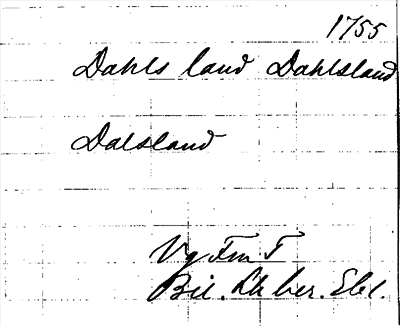 1755
Dahls land Dahlsland
Dalsland
Vg Fm T
Bil. Ak ber. Ebl.